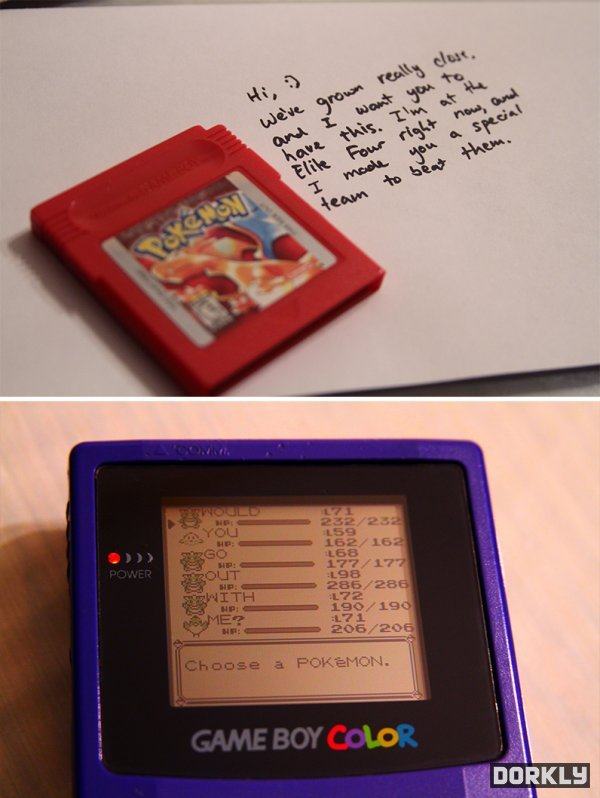 Hi, :)
We've grown really close,
and I want you to
have this. I'm at the
Elite Four right now, and
I made you a special
team to beat them.
POKéMON
COMM.
POWER
WOULD :L71
HP: 232/232
YOU :L59
HP: 162/162
GO :L68
HP: 177/177
OUT :L98
HP: 286/286
WITH :L72
HP: 190/190
ME? :L71
HP: 206/206
Choose a POKéMON.
GAME BOY COLOR
DORKLY